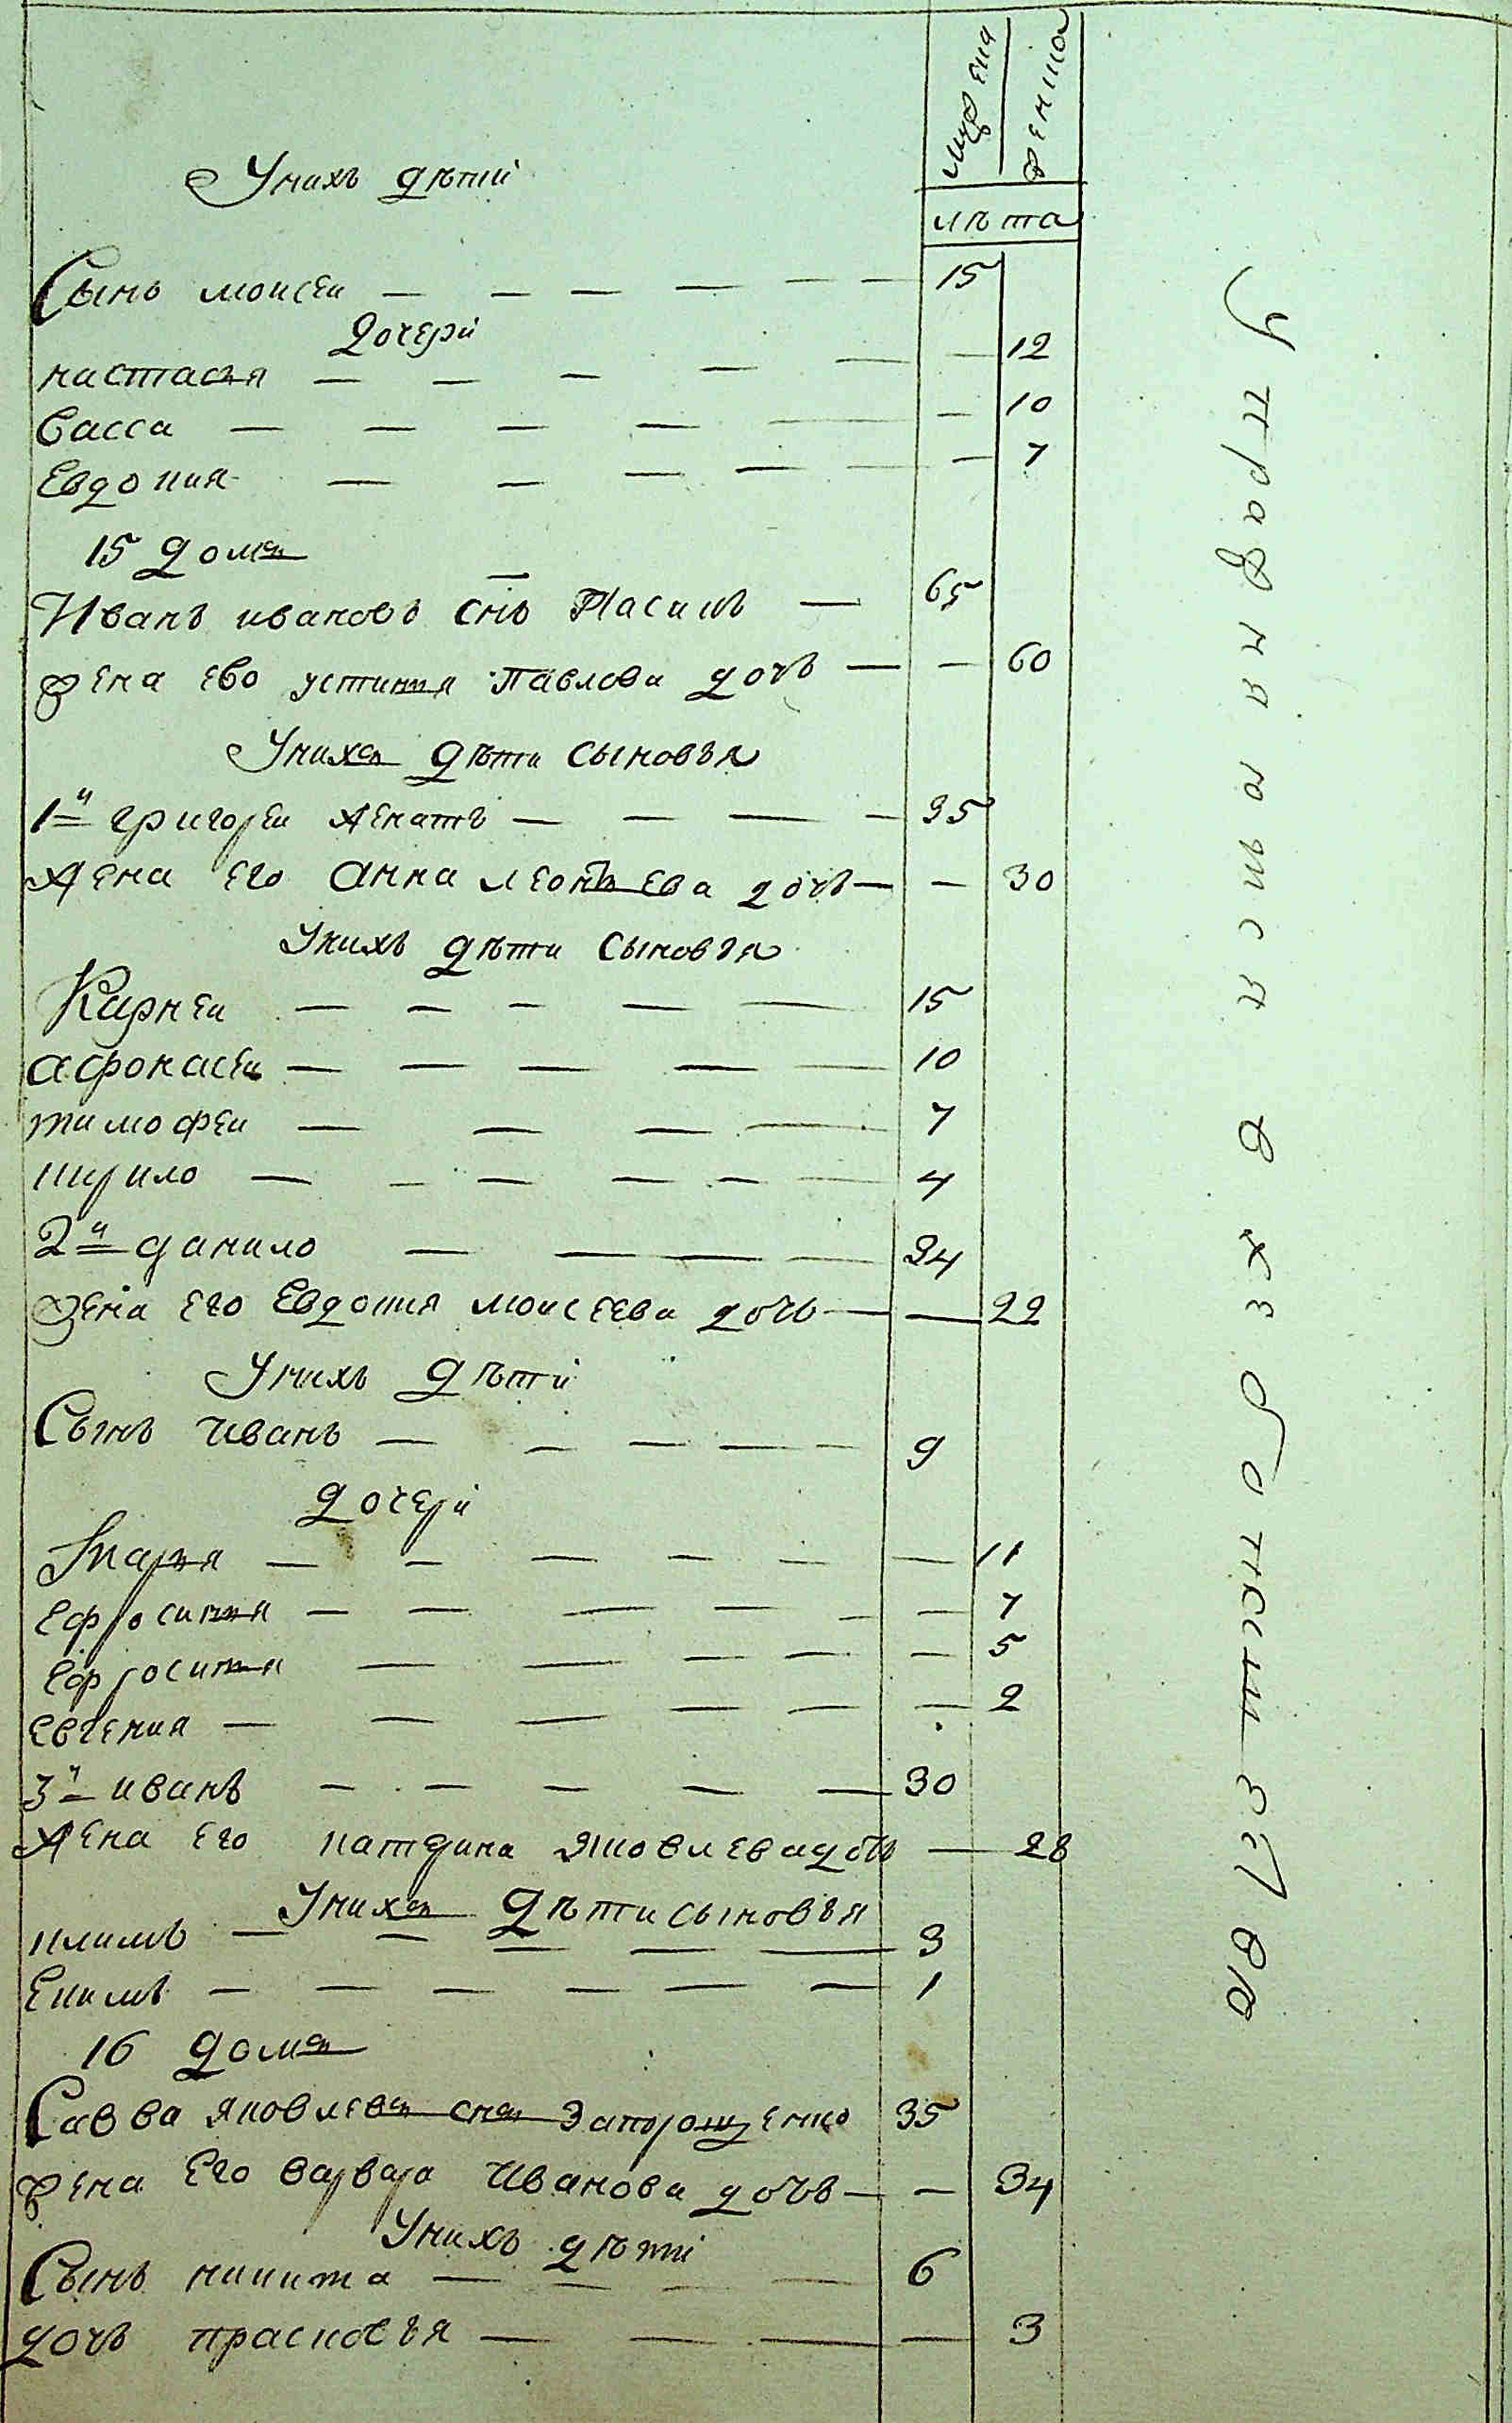 мужеска женска
лѣта
У нихъ дѣти
Сынъ моисеи — 15
дочери
настасья — 12
васса — 10
Евдокия — 7
15 домъ
Иванъ ивановъ снъ — 65
жена ево устиния павлова дочь — 60
У нихъ дѣти сыновъя
1й григореи женатъ — 35
жена его анна леонтьева дочь — 30
У нихъ дѣти сыновъя
Карнеи — 15
афонасеи — 10
тимофеи — 7
кирило — 4
2й данило — 34
жена его Евдокия моисеева дочь — 22
У нихъ дѣти
Сынъ иванъ — 9
дочери
Марья — 11
ефросиния — 7
ефросиния — 5
евгения — 2
3й иванъ — 30
жена его яковлева дочь — 28
У нихъ дѣти сыновъя
климъ — 3
Екимъ — 1
16 домъ
Савва яковлевъ снъ Запорощенко 35
жена Его варвара Иванова дочь — 34
У нихъ дѣти
Сынъ никита — 6
дочь прасковъя — 3
Упражняются в